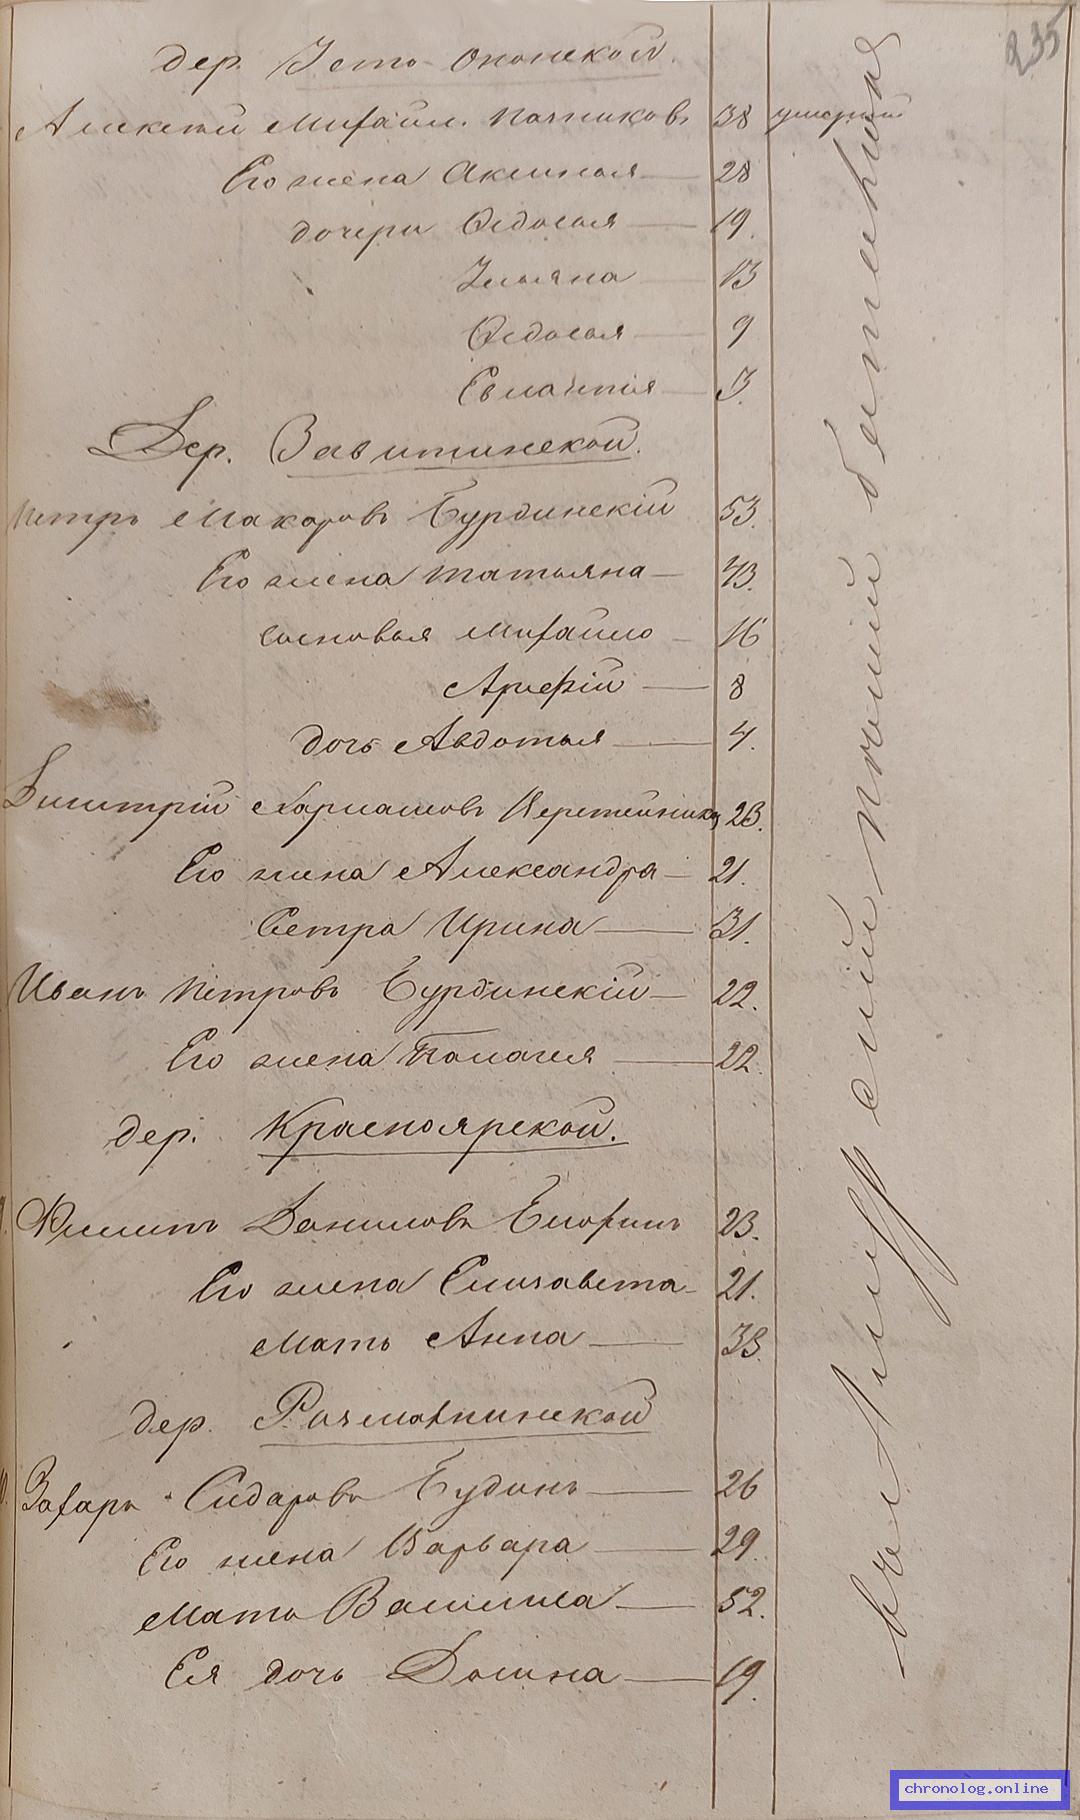 235
дер. Усто-Ононской.
Алексей Михайл. Пачниковъ 38 умерший
Его жена Аксинья 28
дочери Федосья 19.
Ульяна 13
Федосья 9
Евлампия 3.
Дер. Завитинской.
Петръ Макаровъ Бурдинскій 53.
Его жена татьяна 43.
сыновья Михайло 16
Арефій 8
дочь Авдотья 4.
Дмитрій Харламовъ 23.
Его жена Александра 21.
Сестра Ирина 31.
Иванъ Петровъ Бурдинскій 22.
Его жена Палагея 22.
дер. Красноярской.
Филипъ Даниловъ Епифинъ 23.
Его жена Елизавета 21.
Мать Анна 38.
дер. Размахнинской
Захаръ Сидаровъ Будинъ 26
Его жена Варвара 29.
Мать Василиса 52.
Ея дочь Домна 19.
chronolog.online